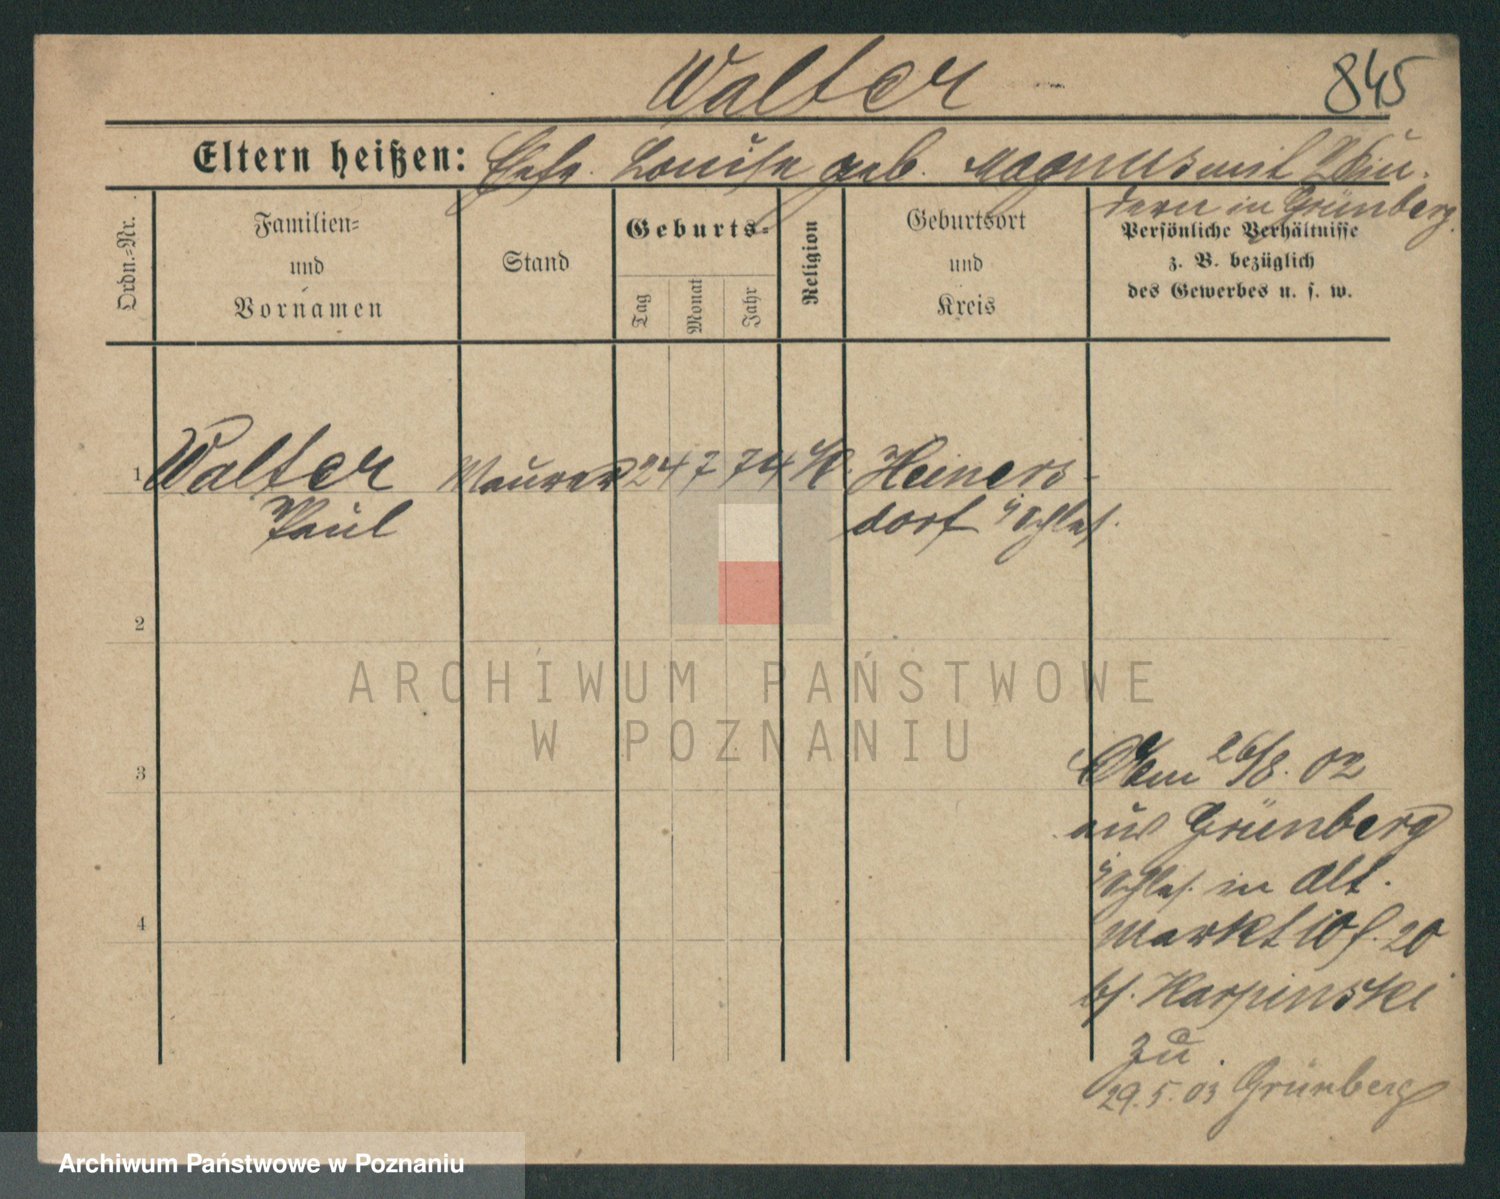 Walter
845
Eltern heißen: Ehefr. Louise geb. Magnus mit Kin-
dern in Grünberg.
Ordn.-Nr.
Familien-
und
Vornamen
Stand
Geburts-
Tag
Monat
Jahr
Religion
Geburtsort
und
Kreis
Persönliche Verhältnisse
z. B. bezüglich
des Gewerbes u. s. w.
1 Walter Maurer 24 7 74 K. Heiners-
Paul dorf i/Schles.
2
3
4
26/8. 02
aus Grünberg
i/Schles. in Alt.
markt 10 f. 20
bs. Karpinski
zu.
29. 5. 03 Grünberg
ARCHIWUM PAŃSTWOWE
W POZNANIU
Archiwum Państwowe w Poznaniu